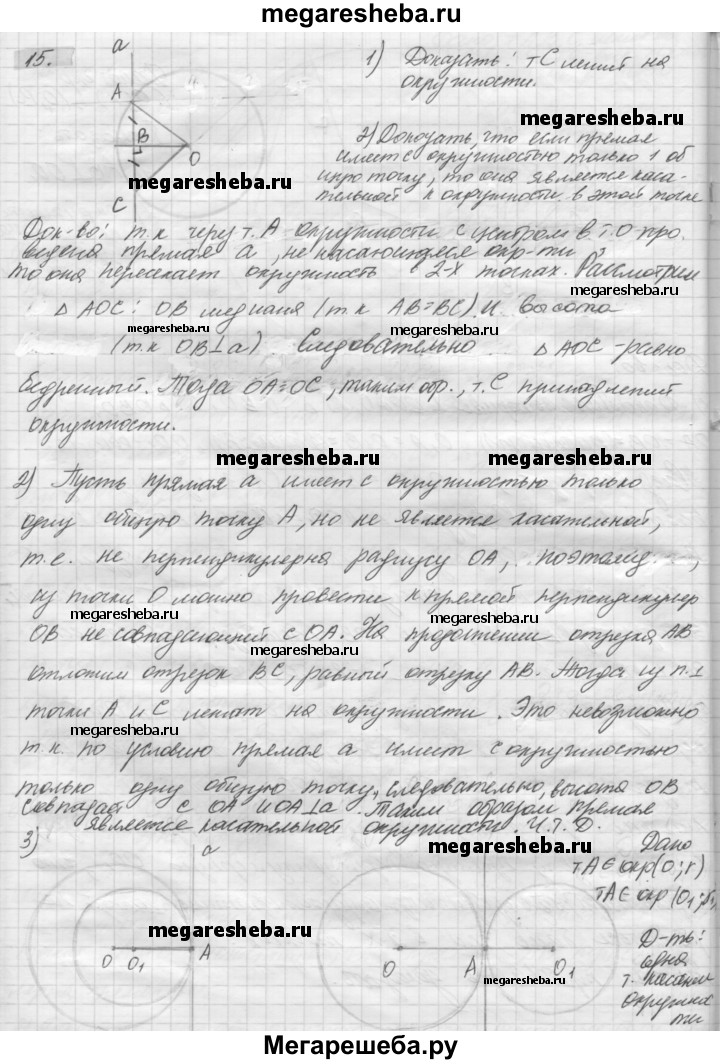 megaresheba.ru
15.
a
A
B
O
C
1) Доказать: т С лежит на
окружности.
megaresheba.ru
2) Доказать, что если прямая
имеет с окружностью только 1 об
щую точку, то она является каса-
тельной к окружности в этой точке
Док-во: т.к через т. А окружности с центром в т. О про
ведена прямая a, не касающаяся окр-ти
то она пересекает окружность 2-х точках. Рассмотрим
megaresheba.ru
△ АОС: ОВ медиана (т.к АВ=ВС) и высота
megaresheba.ru
megaresheba.ru
(т.к ОВ⊥a) Следовательно △ АОС - равно
бедренный. Тогда ОА=ОС, таким обр., т. С принадлежит
окружности.
megaresheba.ru
megaresheba.ru
2) Пусть прямая a имеет с окружностью только
одну общую точку А, но не является касательной,
т.е. не перпендикулярна радиусу ОА, поэтому ,
из точки О можно провести к прямой перпендикуляр
megaresheba.ru
ОВ не совпадающий с ОА. На продолжении отрезка АВ
megaresheba.ru
отложим отрезок ВС, равный отрезку АВ. Тогда из п.1
точки А и С лежат на окружности. Это невозможно
megaresheba.ru
т.к. по условию прямая a имеет с окружностью
только одну общую точку, следовательно, высота ОВ
совпадает с ОА и ОА⊥a. Таким образом прямая
является касательной окружности. Ч.Т.Д.
3)
megaresheba.ru
a
Дано
тА∈окр(О;r)
тА∈окр(О₁;r₁)
megaresheba.ru
O O₁ A
O A O₁
Д-ть:
одна
т. касания
окружнос
ти
Мегарешеба.ру